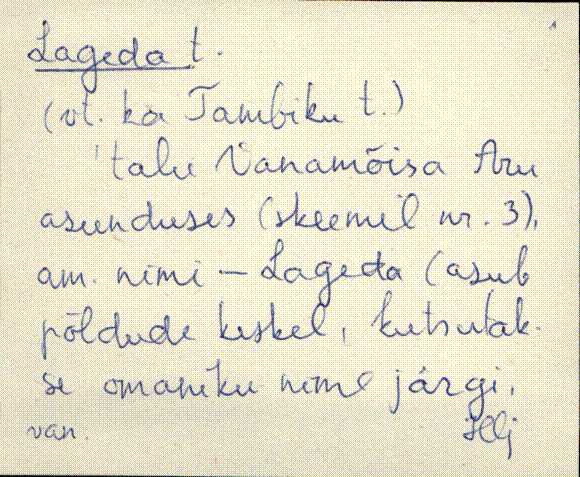 Lageda t.
(vt. ka Tambiku t.)
'talu Vanamõisa Aru
asunduses (skeemil nr. 3),
am. nimi – Lageda (asub
põldude keskel, kutsutak-
se omaniku nime järgi.
van.